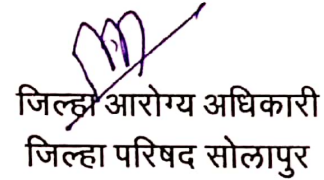 जिल्हा आरोग्य अधिकारी
जिल्हा परिषद सोलापुर